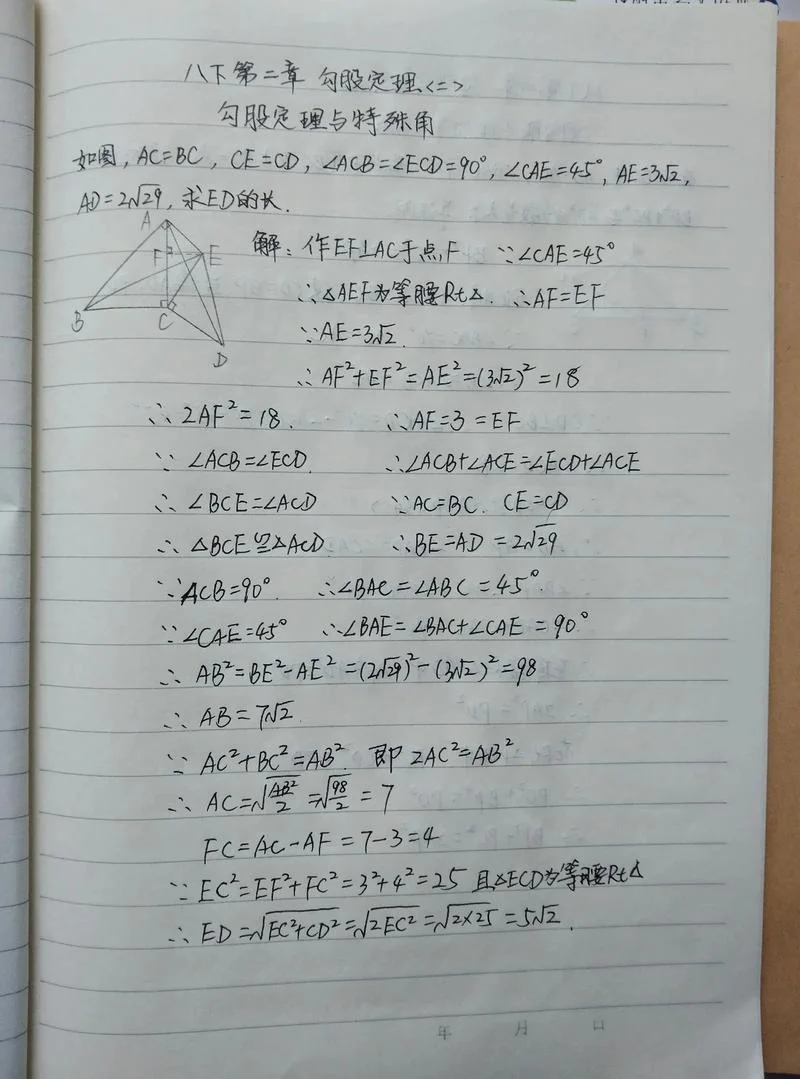 八下第二章 勾股定理<二>
勾股定理与特殊角
如图, AC=BC, CE=CD, ∠ACB=∠ECD=90°, ∠CAE=45°, AE=3√2,
AD=2√29, 求ED的长.
A
F
E
B
C
D
解: 作EF⊥AC于点F ∵∠CAE=45°
∴△AEF为等腰Rt△. ∴AF=EF
∵AE=3√2.
∴AF²+EF²=AE²=(3√2)²=18
∴ 2AF²=18. ∴AF=3=EF
∵ ∠ACB=∠ECD. ∴∠ACB+∠ACE=∠ECD+∠ACE
∴ ∠BCE=∠ACD ∵AC=BC. CE=CD
∴ △BCE≌△ACD. ∴BE=AD=2√29
∵ACB=90°. ∴∠BAC=∠ABC=45°.
∵∠CAE=45° ∴∠BAE=∠BAC+∠CAE=90°
∴ AB²=BE²-AE²=(2√29)²-(3√2)²=98
∴ AB=7√2.
∵ AC²+BC²=AB². 即 2AC²=AB²
∴ AC=√(AB²/2)=√(98/2)=7
FC=AC-AF=7-3=4
∵ EC²=EF²+FC²=3²+4²=25 且△ECD为等腰Rt△
∴ ED=√(EC²+CD²)=√(2EC²)=√(2×25)=5√2.
年 月 日